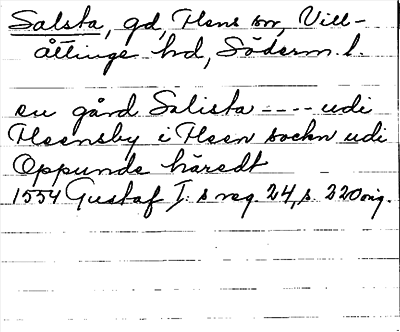 Salsta, gd, Flens sn, Vill-
åttinge hd, Söderm. l.
en gård Salista ---- udi
Fleensby i Fleen sockn udi
Oppunda häredt
1554 Gustaf I:s reg. 24, s. 220 orig.